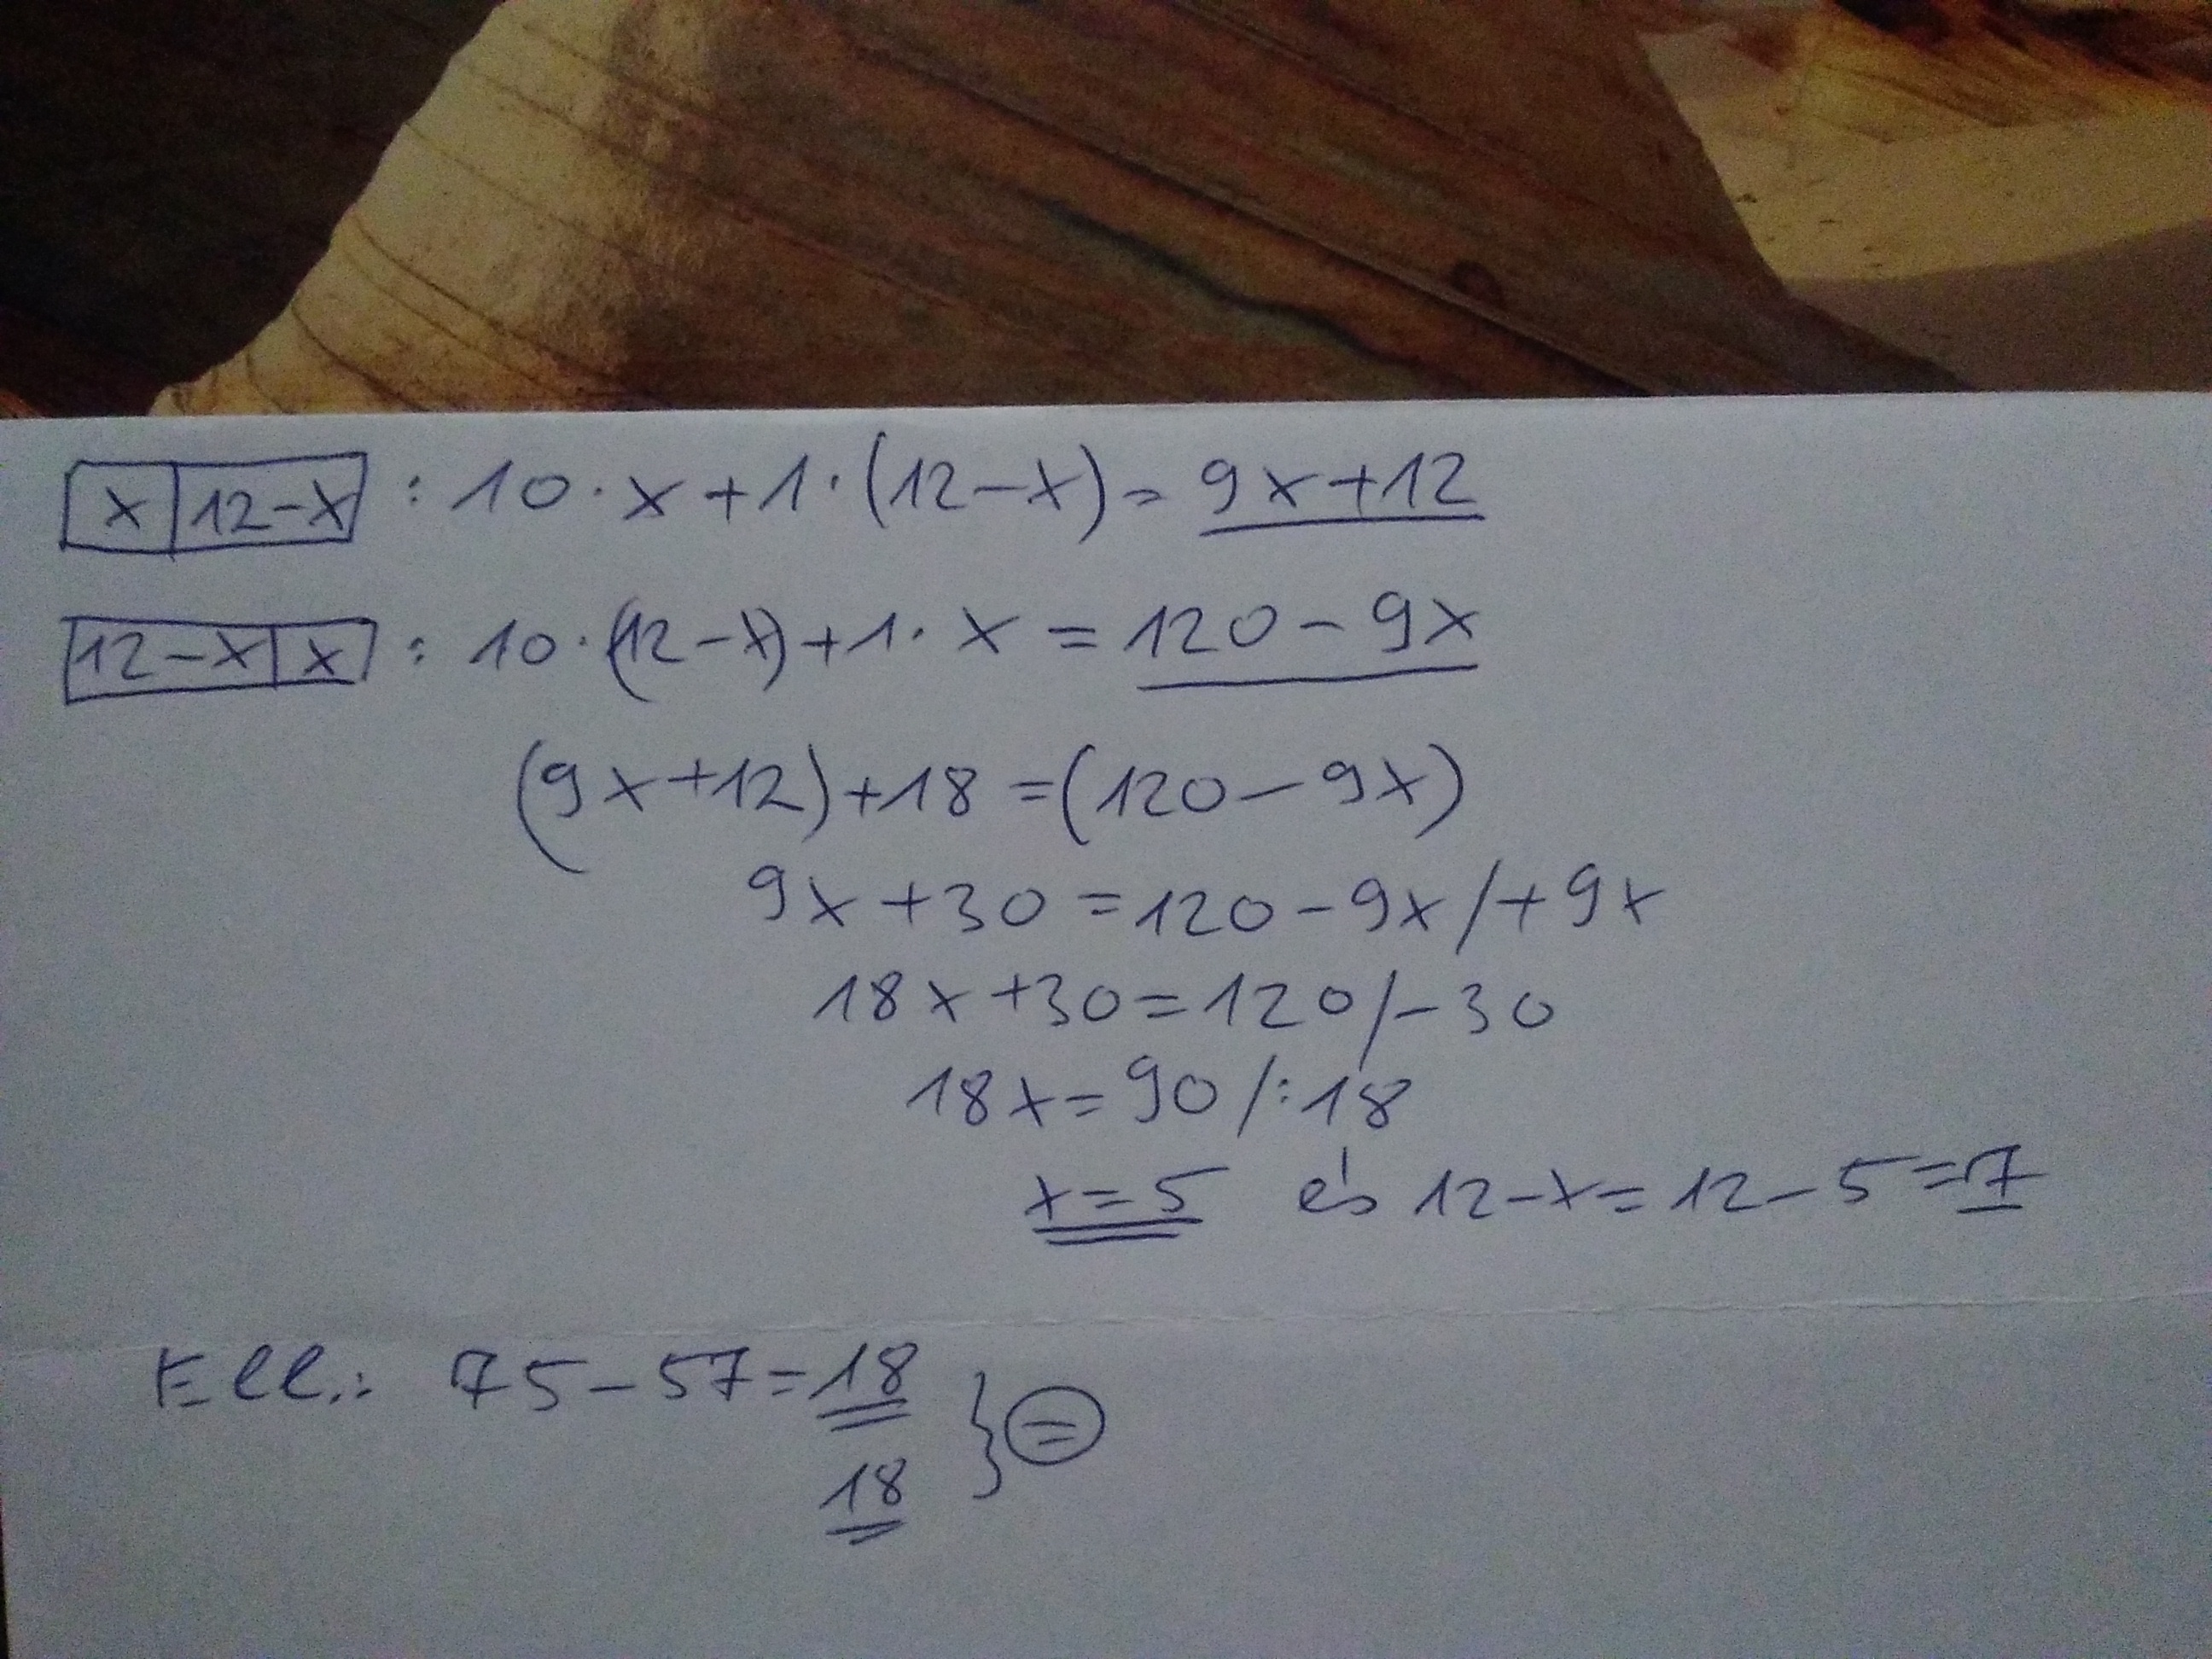 x | 12-x : 10·x+1·(12-x)=9x+12
12-x | x : 10·(12-x)+1·x=120-9x
(9x+12)+18=(120-9x)
9x+30=120-9x/+9x
18x+30=120/-30
18x=90/:18
x=5 és 12-x=12-5=7
Ell.: 75-57=18
18 } =